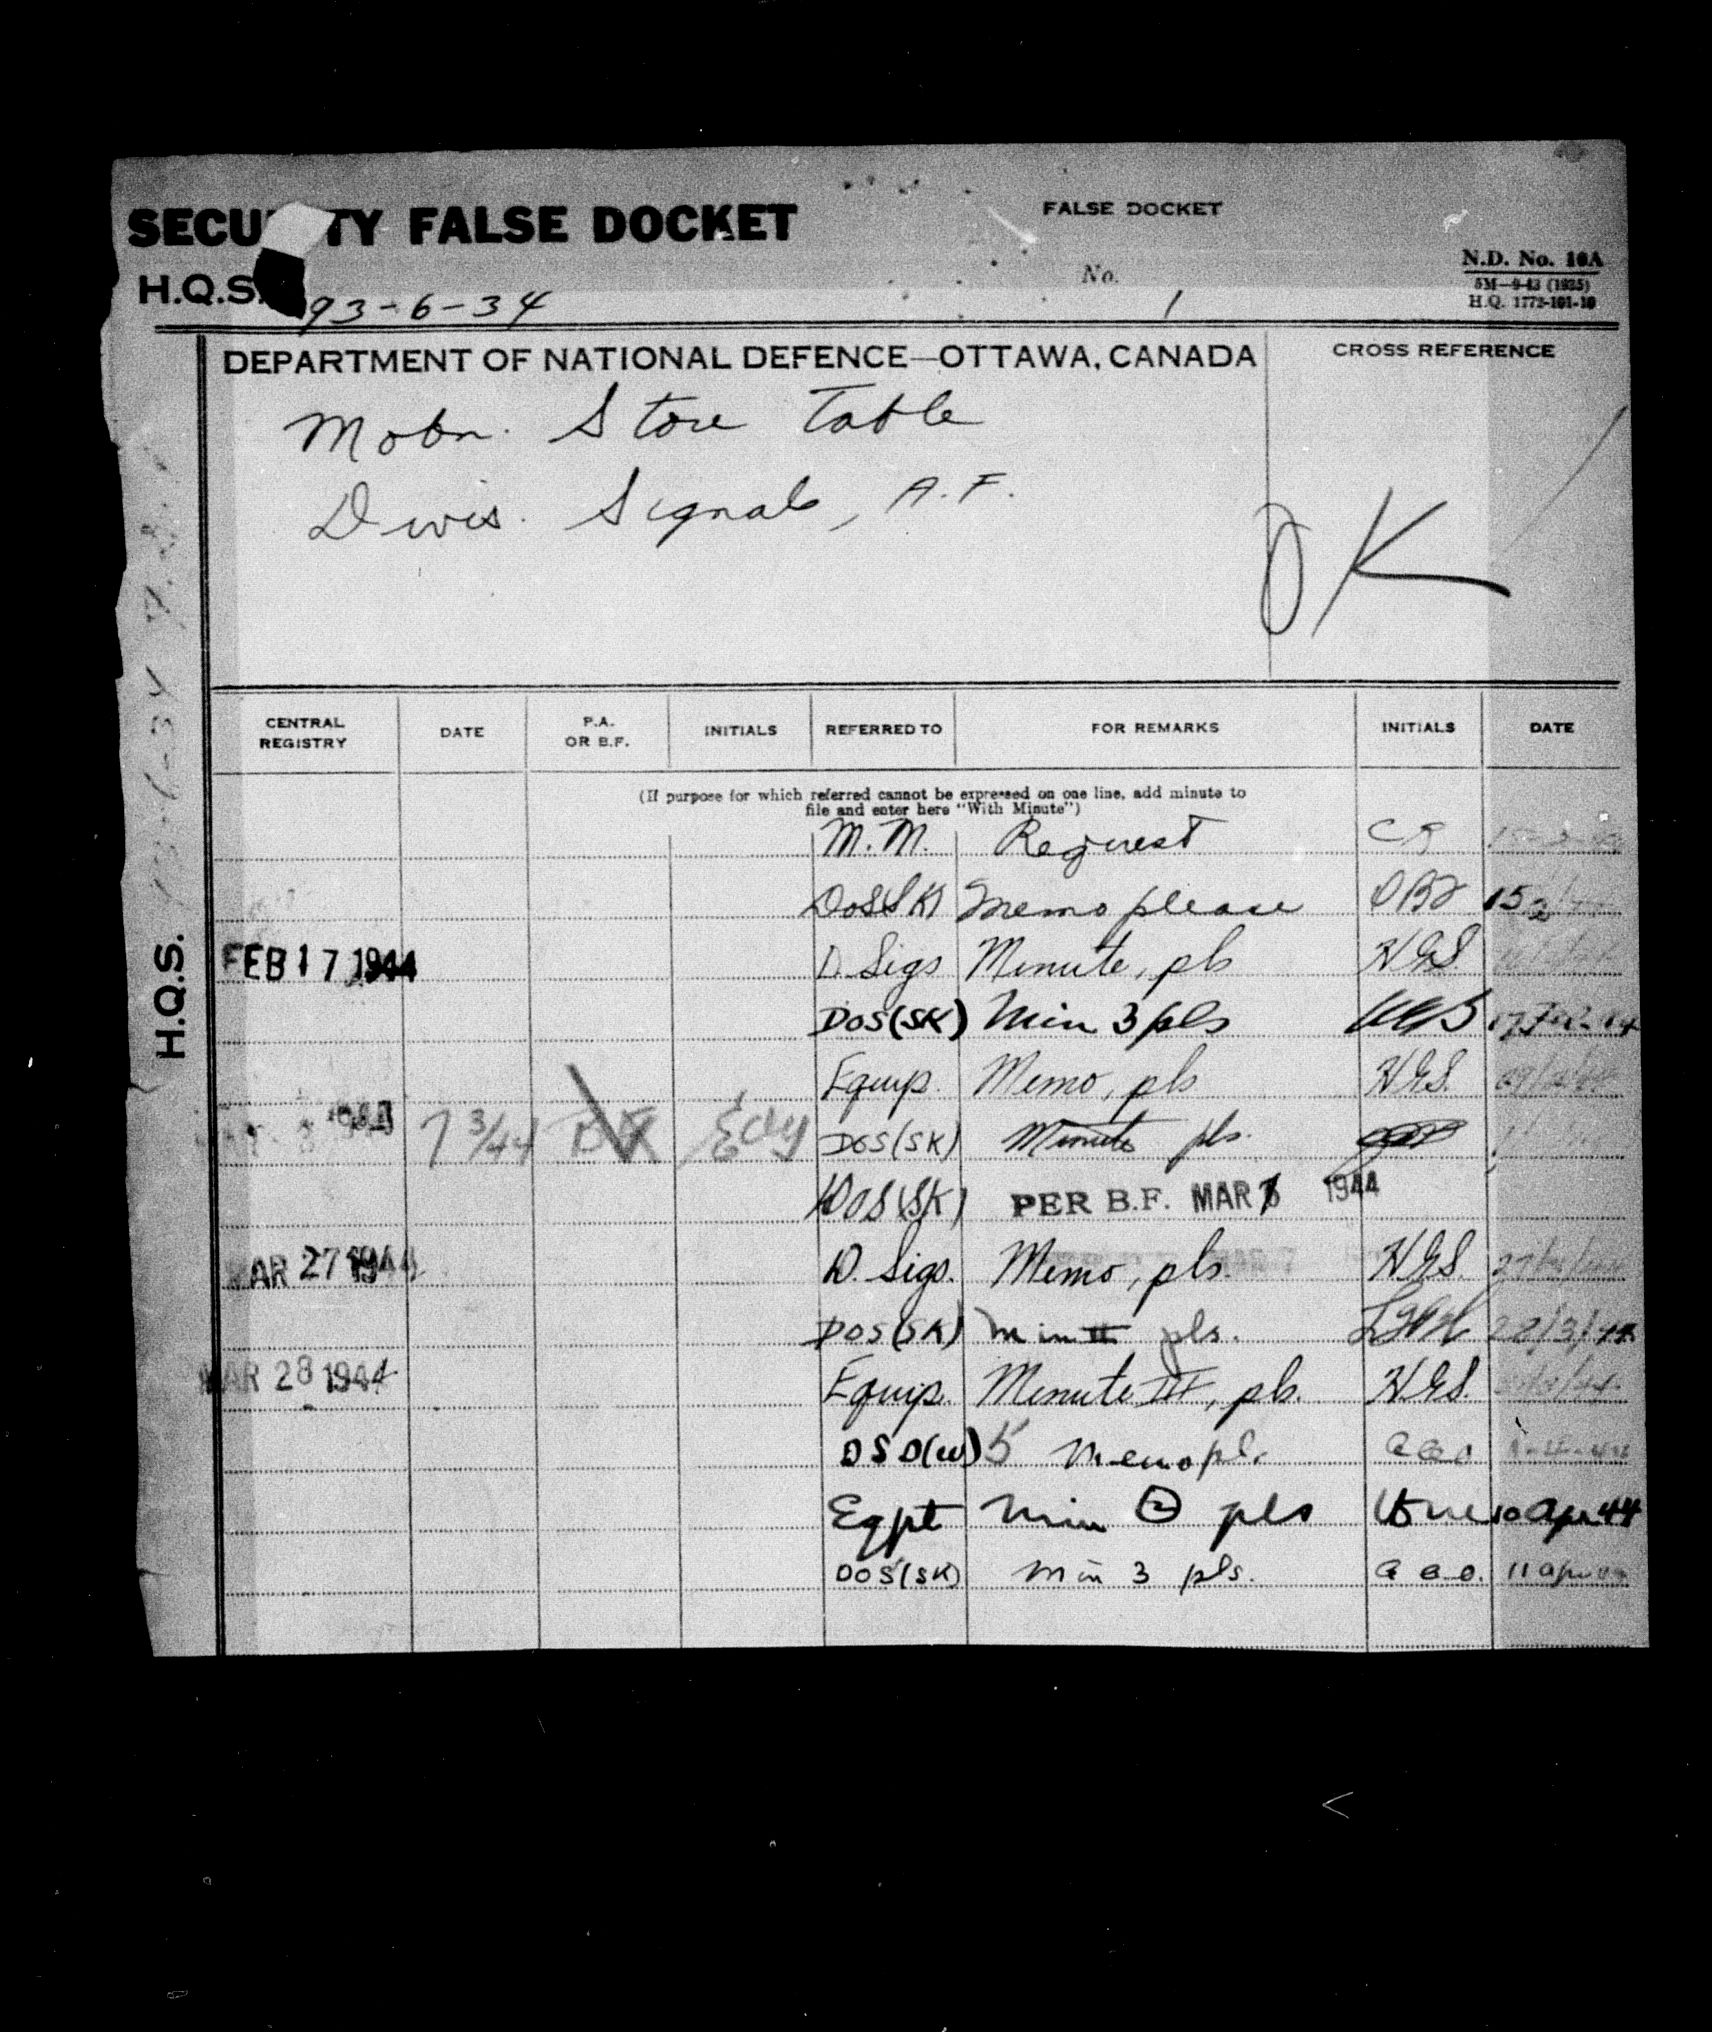 SECURITY FALSE DOCKET
FALSE DOCKET
No. 1
N.D. No. 10A
5M—9-43 (1935)
H.Q. 1772-101-10
H.Q.S. 93-6-34
DEPARTMENT OF NATIONAL DEFENCE—OTTAWA, CANADA
CROSS REFERENCE
Mobn. Store Table
Divis. Signals, A.F.
OK
H.Q.S.
CENTRAL REGISTRY DATE P.A. OR B.F. INITIALS REFERRED TO FOR REMARKS INITIALS DATE
(If purpose for which referred cannot be expressed on one line, add minute to
file and enter here "With Minute")
M.M. Request
DOS(SK) Memo please 15
FEB 17 1944 D. Sigs Minute, pls HGS
DOS(SK) Min 3 pls
Equip. Memo, pls HGS.
7 3/44 DOS(SK) Minute pls.
DOS(SK) PER B.F. MAR 1944
MAR 27 1944 D. Sigs. Memo, pls. HGS.
DOS(SK) Min II pls. 28/3/44
MAR 28 1944 Equip. Minute III, pls. HGS.
DSD(W) 5 Memo pls.
Eqpt Min 2 pls 10 Apr 44
DOS(SK) Min 3 pls. 11 Apr